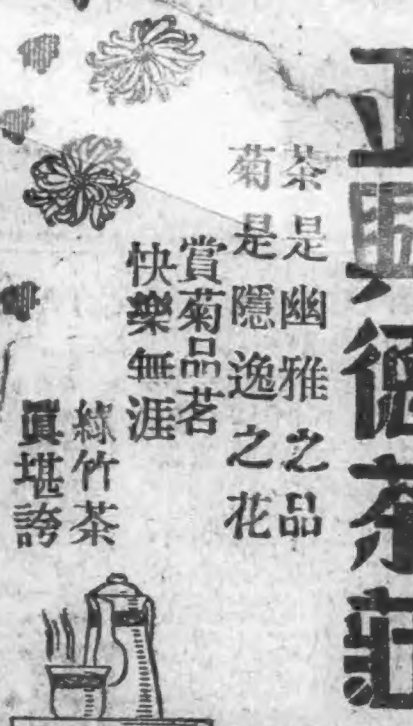 正興德茶莊
茶是幽雅之品
菊是隱逸之花
賞菊品茗
快樂無涯
綠竹茶
眞堪誇